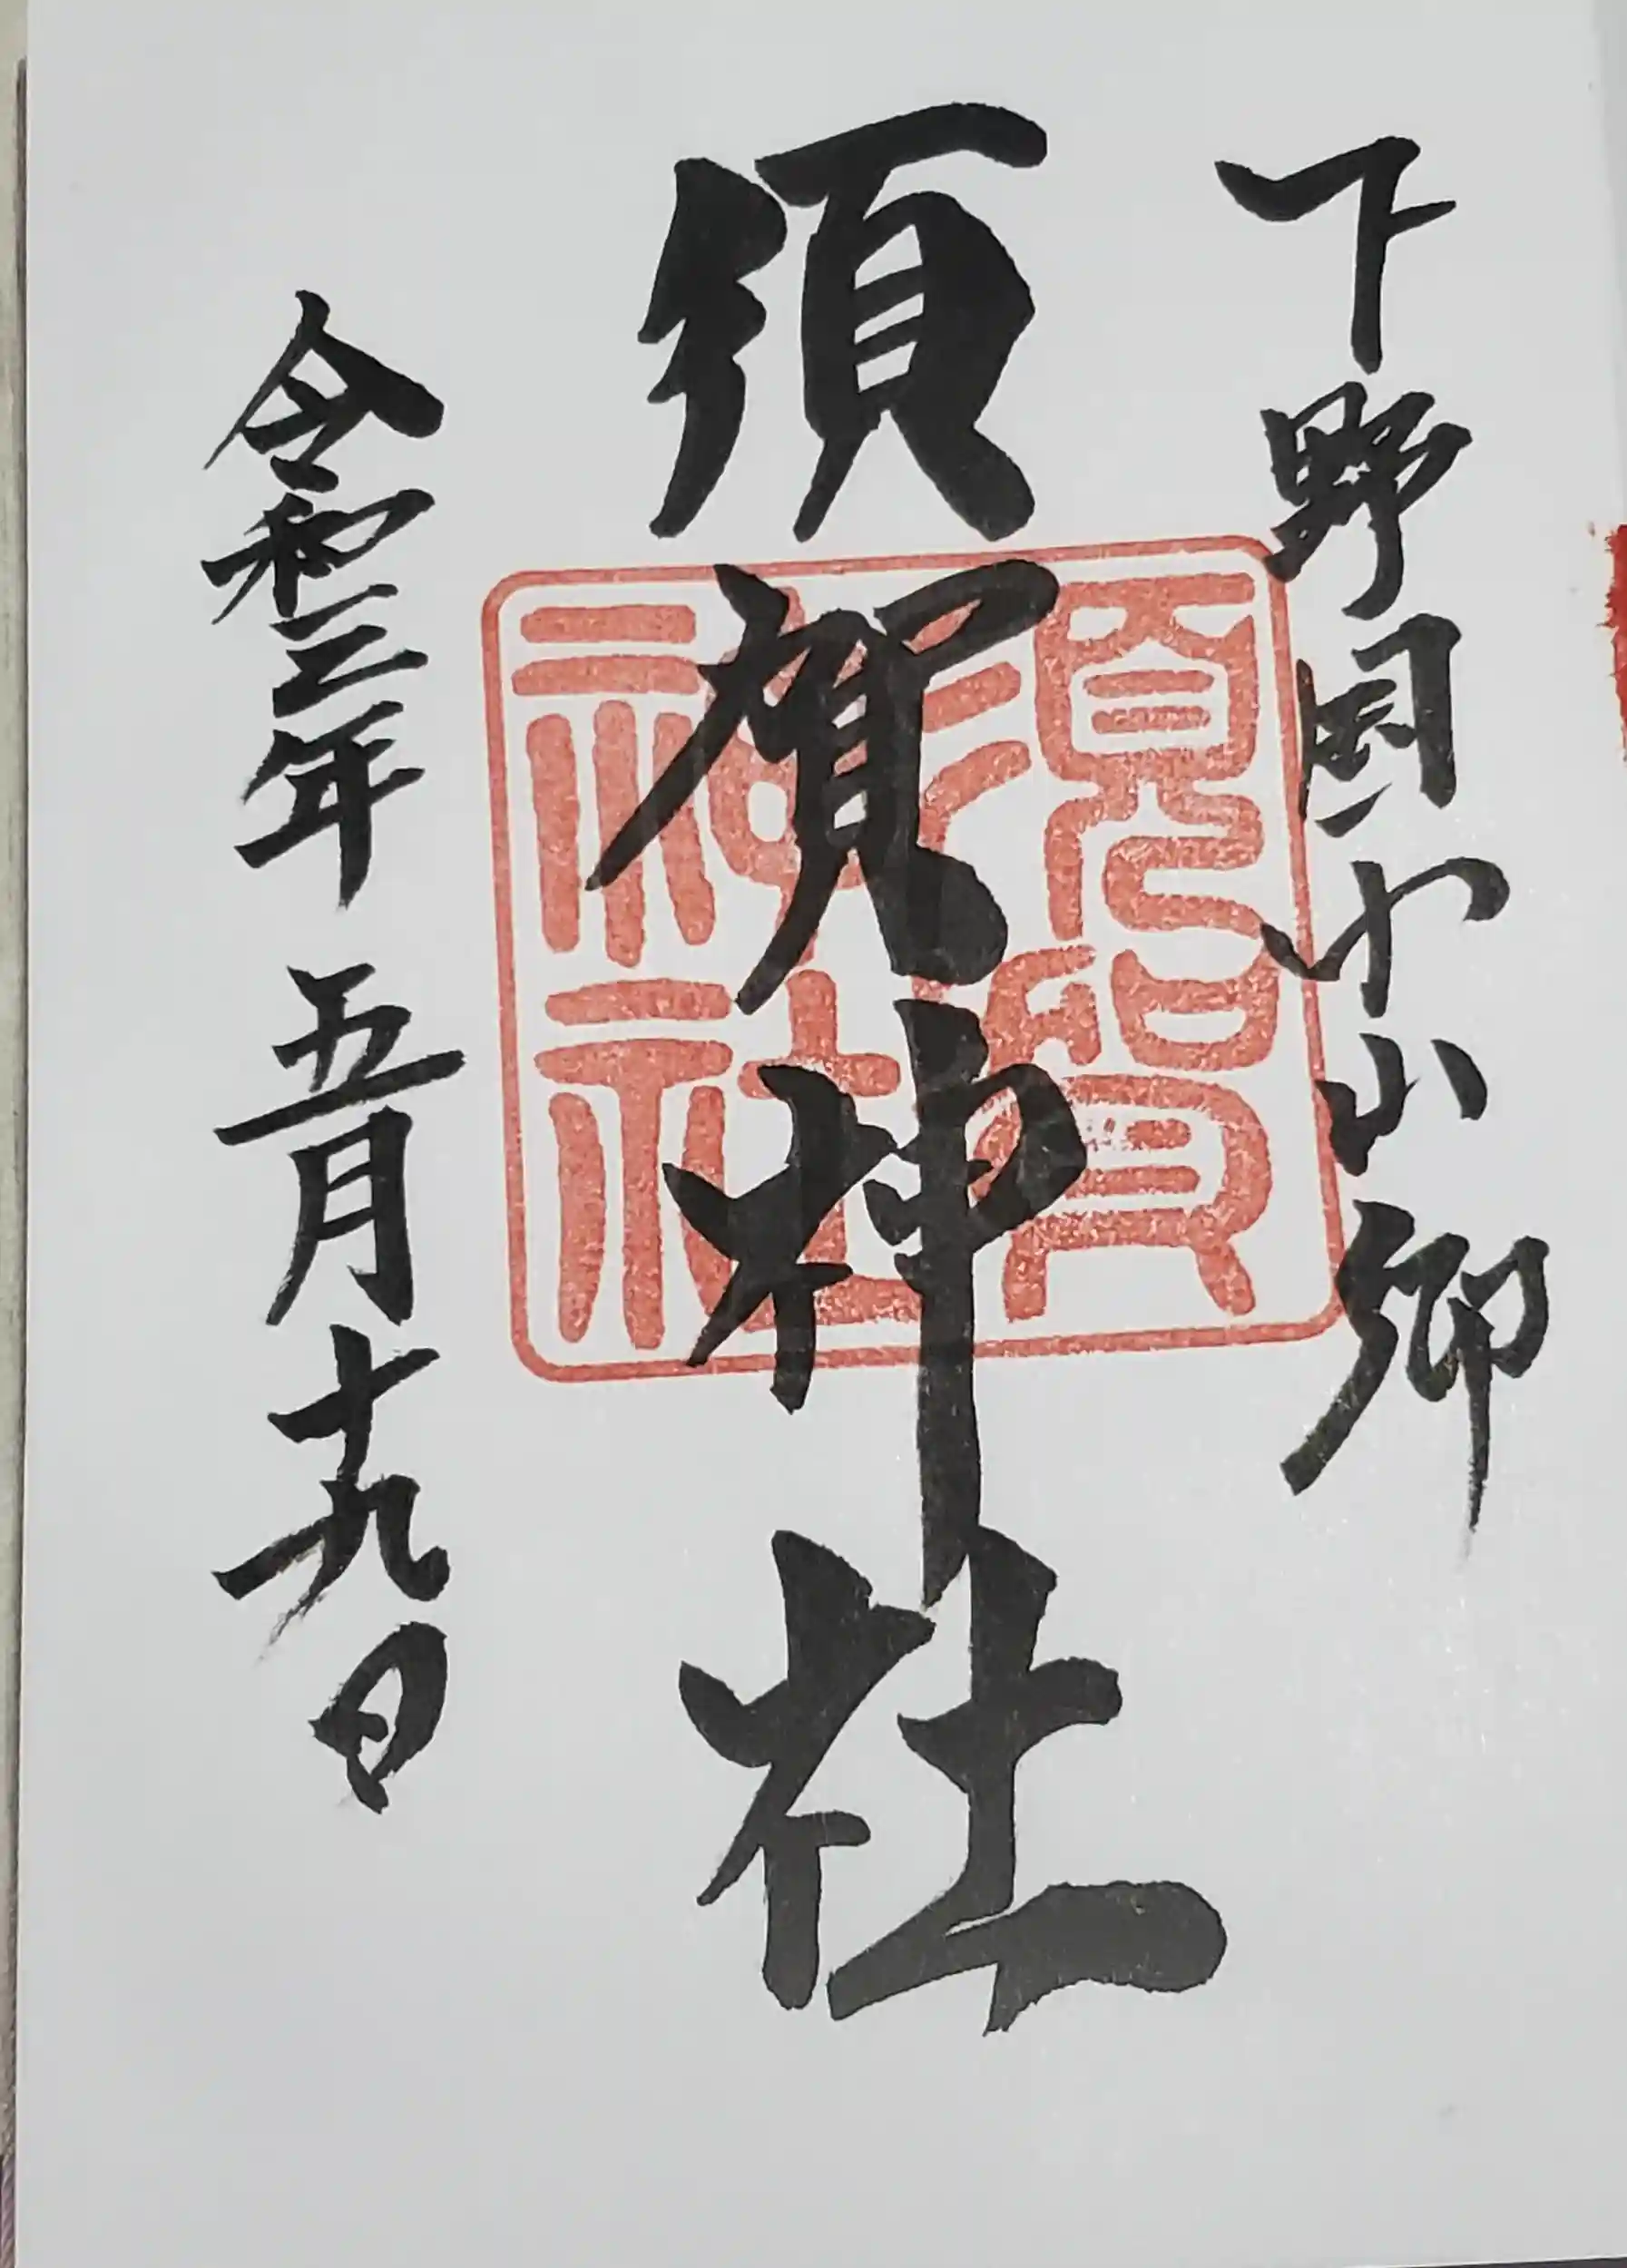 下野国小山郷
須賀神社
須賀神社
令和三年五月十九日